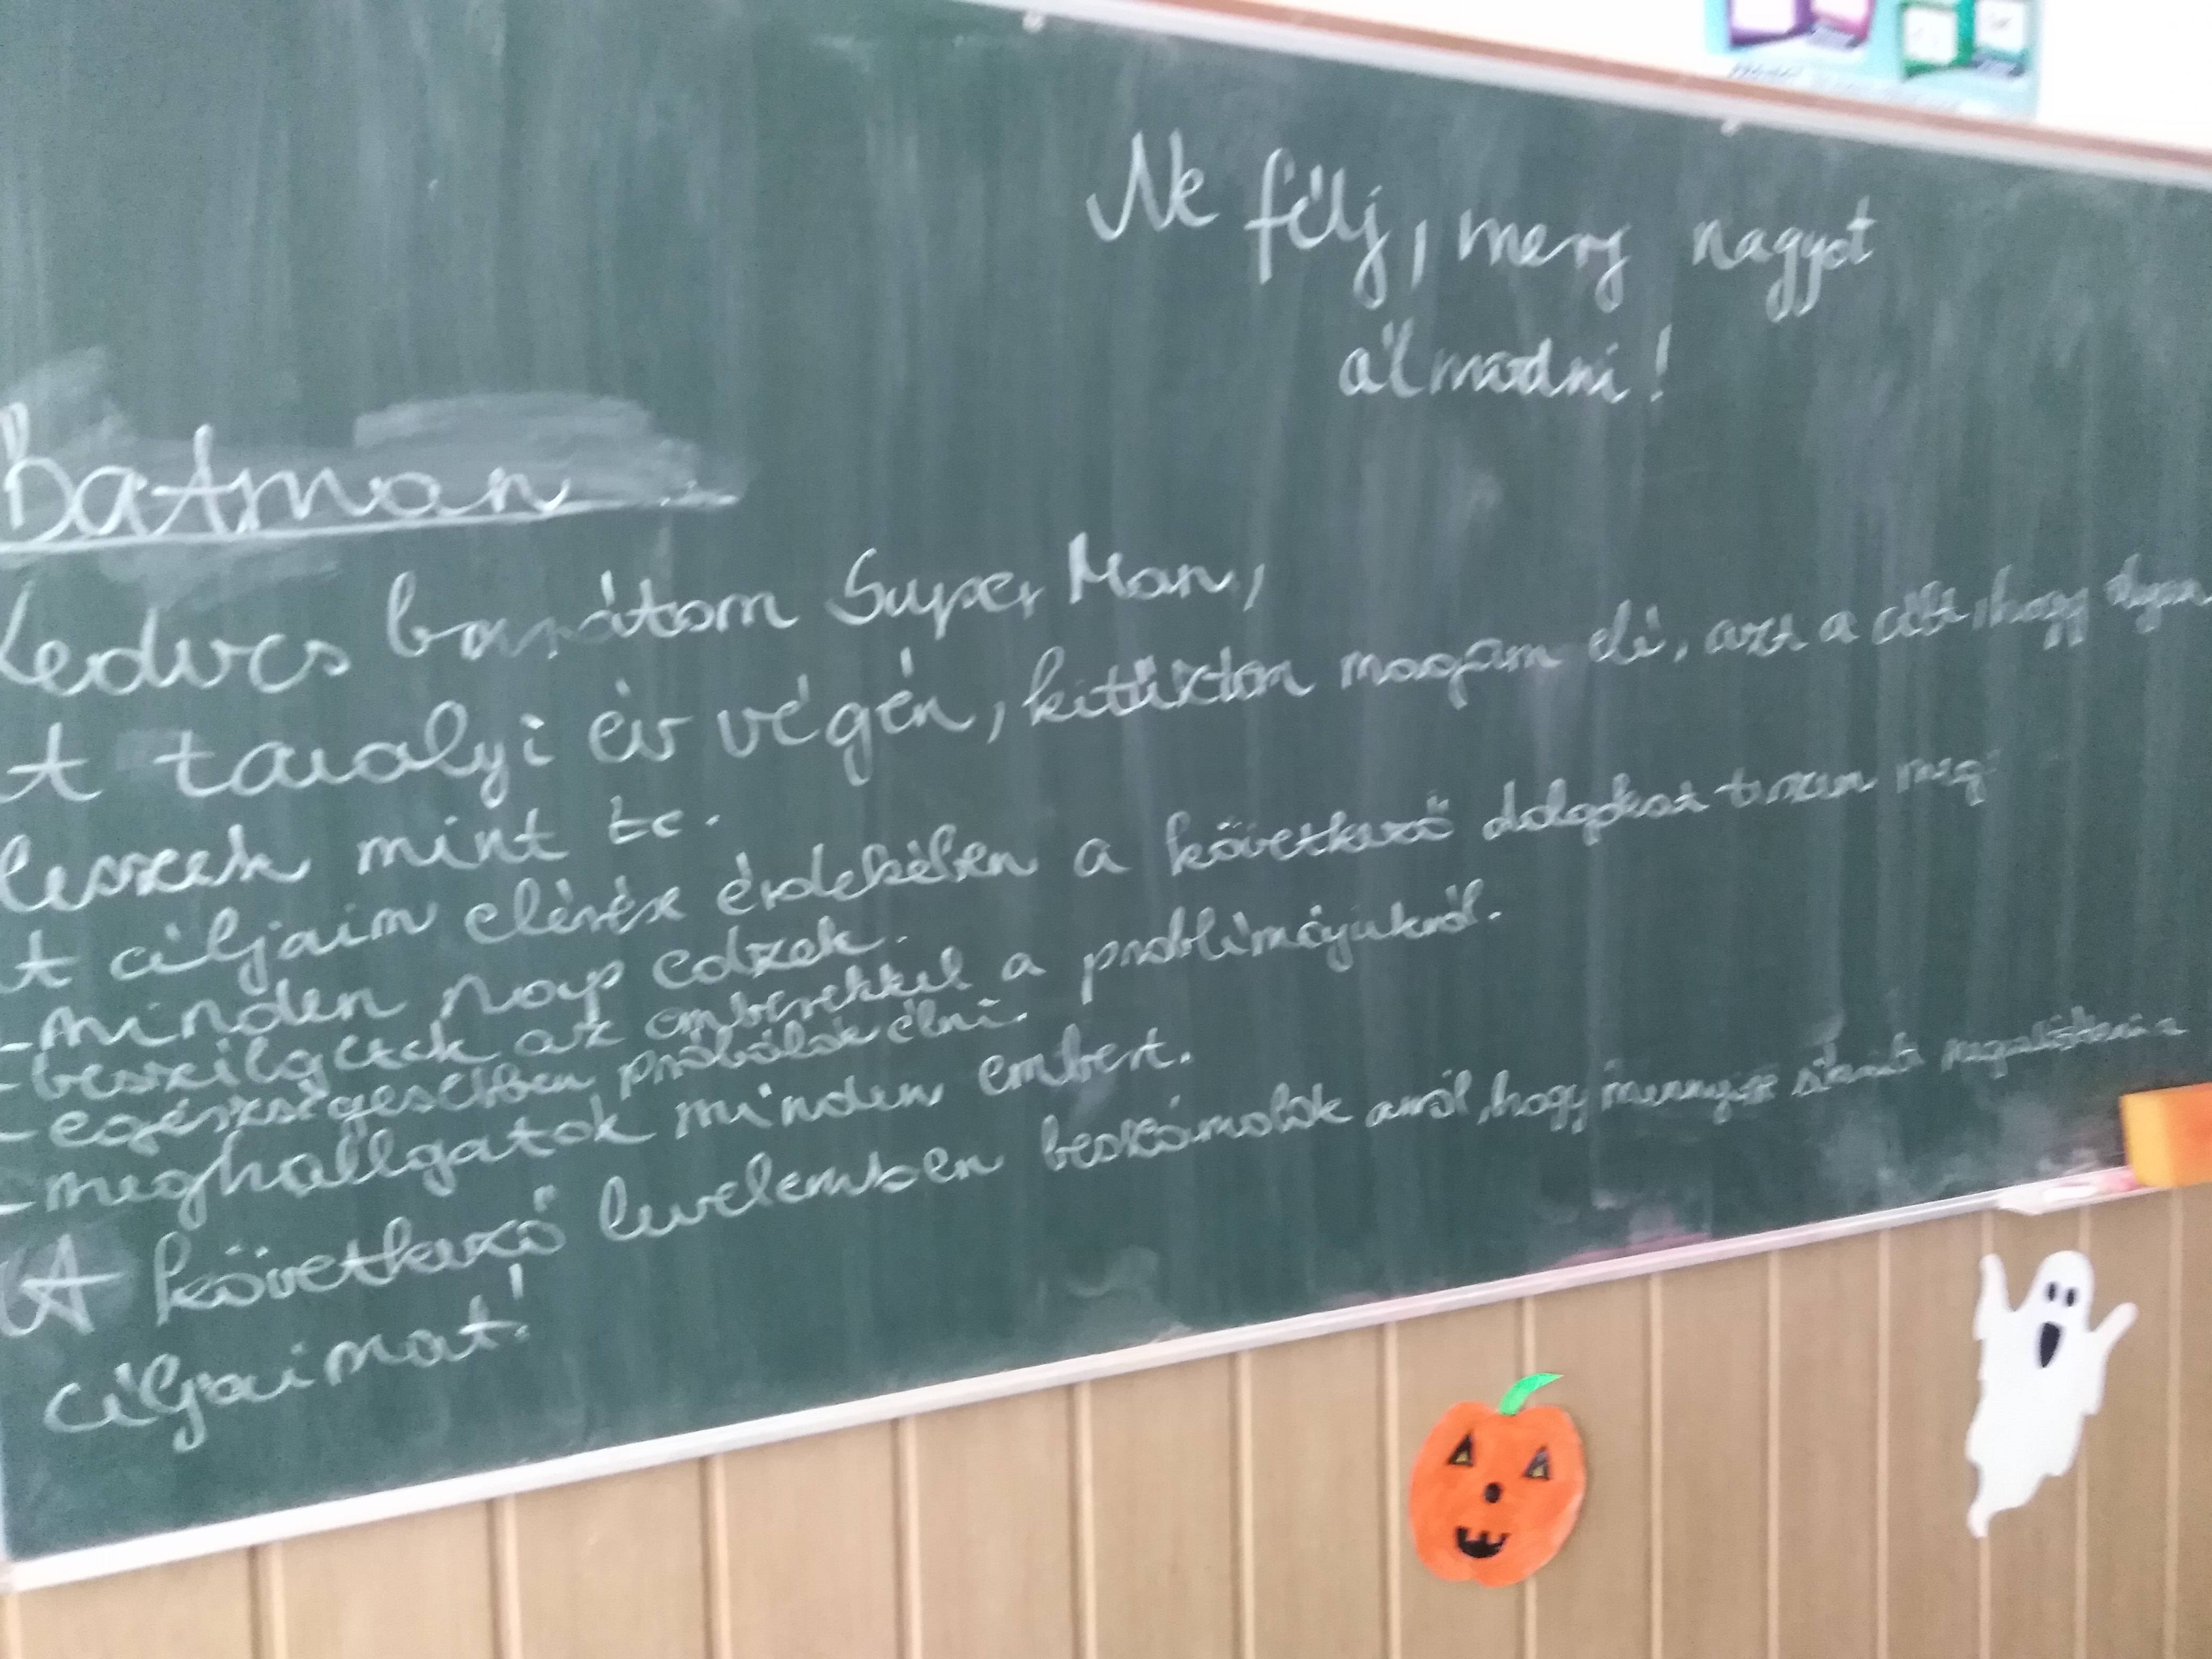 Ne félj, merj nagyot
álmodni!
Batman
Kedves barátom Super Man,
A tavalyi év végén, kitűztem magam elé, azt a célt, hogy olyan
leszek mint te.
A céljaim elérése érdekében a következő dolgokat teszem meg:
- minden nap edzek.
- beszélgetek az emberekkel a problémájukról.
- egészségesebben próbálok élni.
- meghallgatok minden embert.
A következő levelemben beszámolok arról, hogy mennyire sikerült megvalósítani a
céljaimat!